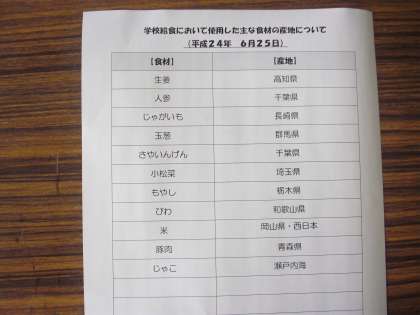 学校給食において使用した主な食材の産地について
(平成24年 6月25日)
【食材】 【産地】
生姜 高知県
人参 千葉県
じゃがいも 長崎県
玉葱 群馬県
さやいんげん 千葉県
小松菜 埼玉県
もやし 栃木県
びわ 和歌山県
米 岡山県・西日本
豚肉 青森県
じゃこ 瀬戸内海